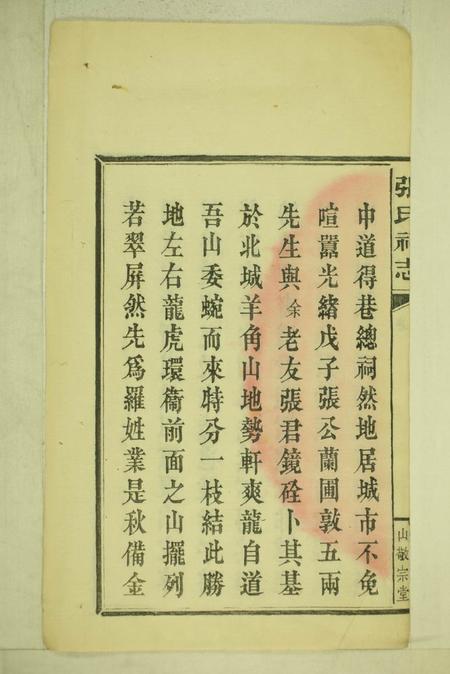 張氏祠志
山敬宗堂
中道得巷總祠然地居城市不免
喧囂光緒戊子張公蘭圃敦五兩
先生與余老友張君鏡銓卜其基
於北城羊角山地勢軒爽龍自道
吾山委蜿而來特分一枝結此勝
地左右龍虎環衞前面之山擺列
若翠屏然先為羅姓業是秋備金